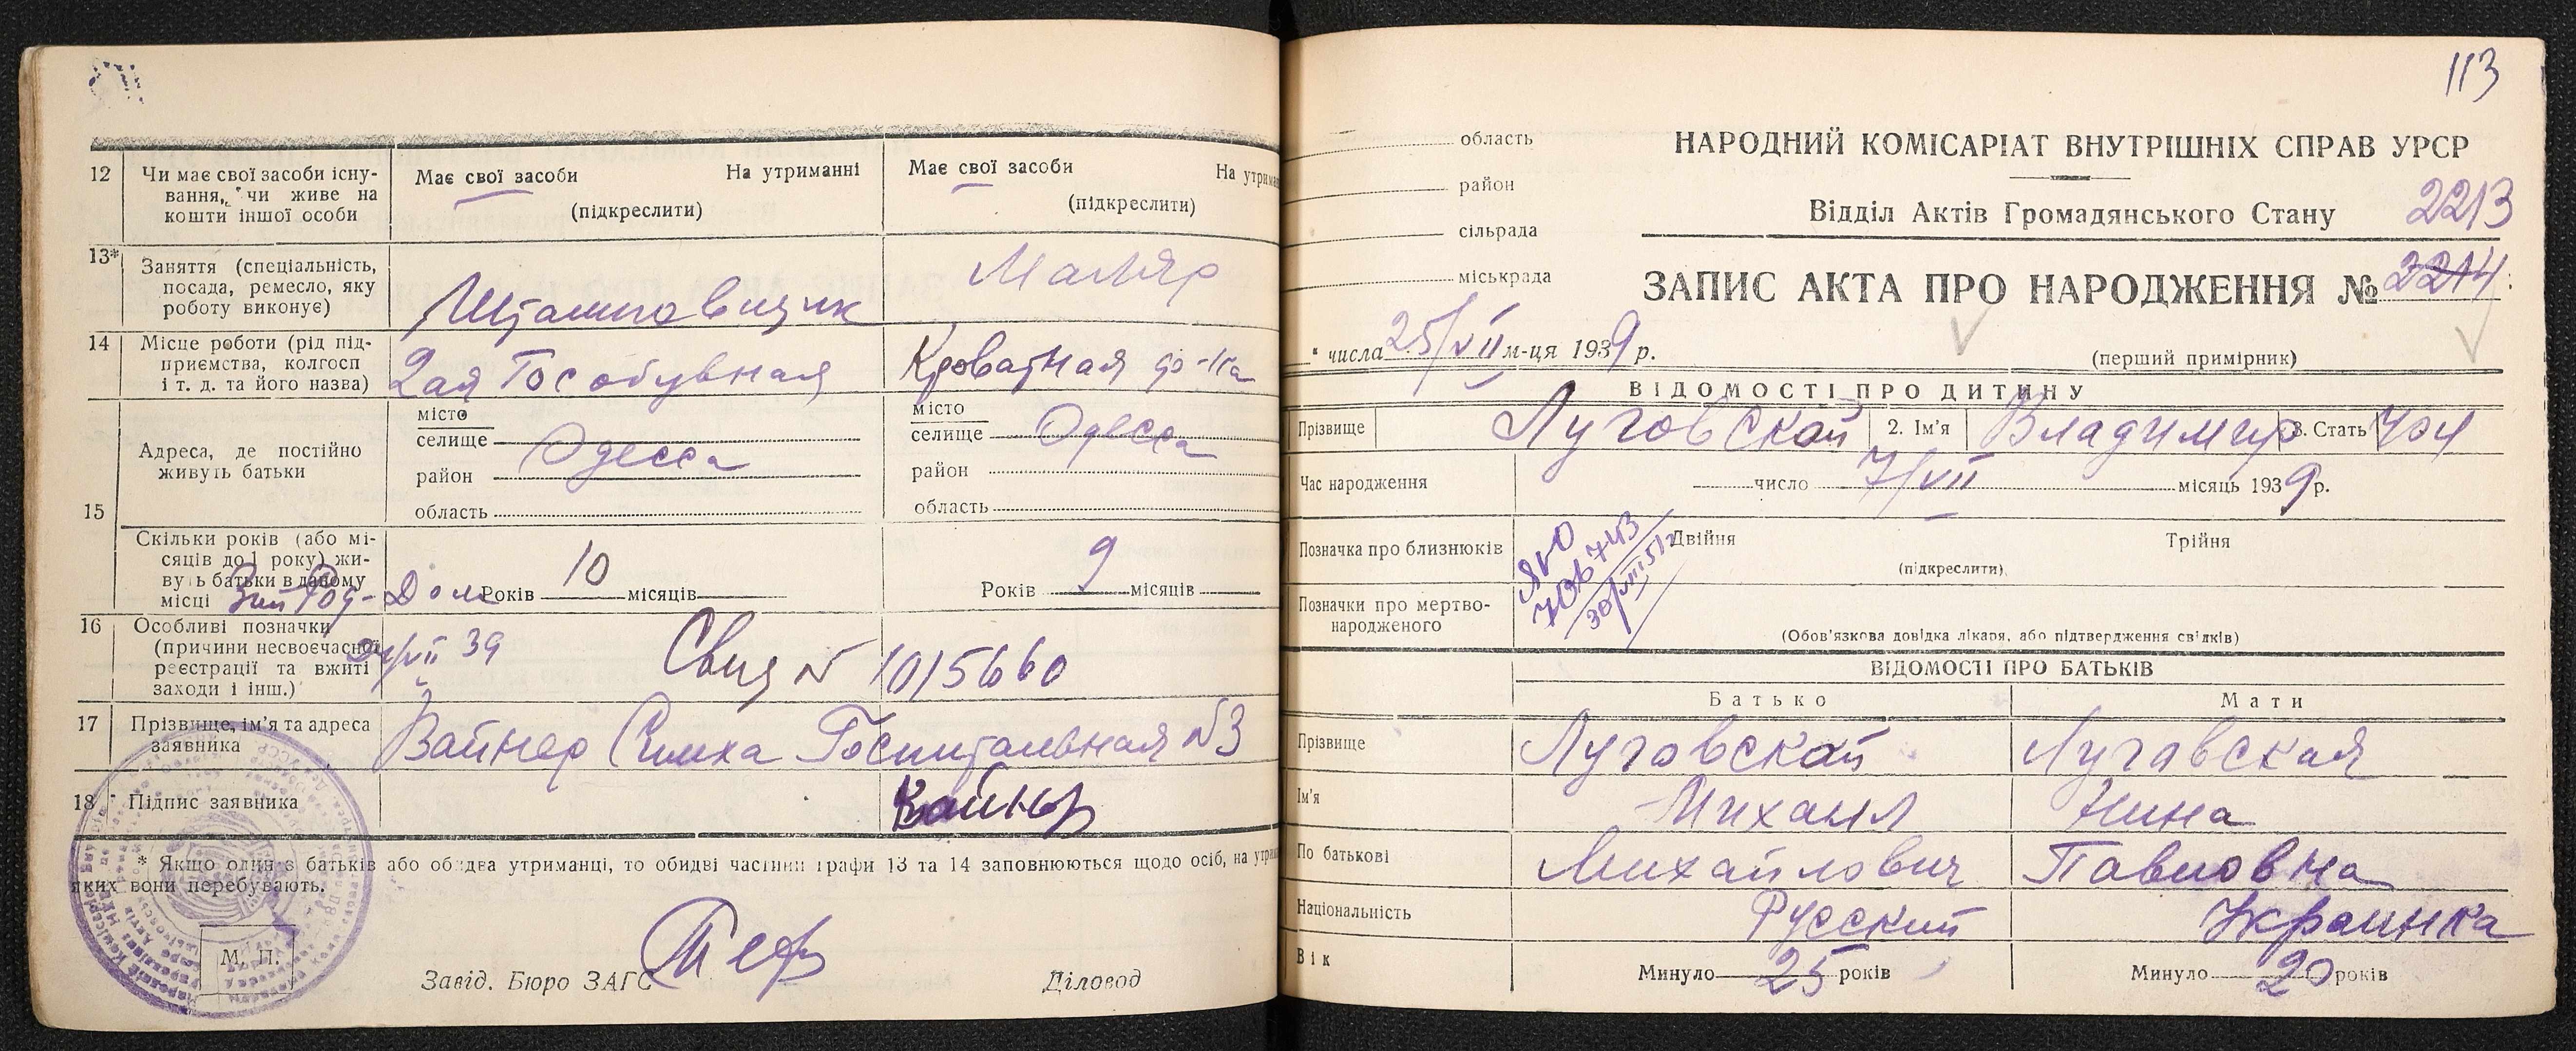 12 Чи має свої засоби існу-
вання, чи живе на
кошти іншої особи
Має свої засоби На утриманні
(підкреслити)
Має свої засоби На утрима
(підкреслити)
13* Заняття (спеціальність,
посада, ремесло, яку
роботу виконує)
Штамповщик
Маляр
14 Місце роботи (рід під-
приємства, колгосп
і т. д. та його назва)
2ая Гособувная
Кроватная ф-ка
15
Адреса, де постійно
живуть батьки
місто
селище
Одесса
район
область
місто
селище Одесса
район
область
Скільки років (або мі-
сяців до 1 року) жи-
вуть батьки в даному
місці
Років 10 місяців
Років 9 місяців
Род-Дом
16 Особливі позначки
(причини несвоєчасної
реєстрації та вжиті
заходи і інш.)
24/VII 39
Свид N 1015660
17 Прізвище, ім'я та адреса
заявника
Вайнер Симха Госпитальная N3
18 Підпис заявника
Вайнер
* Якщо один з батьків або обидва утриманці, то обидві частини графи 13 та 14 заповнюються щодо осіб, на утрим
яких вони перебувають.
М. П.
Завід. Бюро ЗАГС
Діловод
113
область
район
сільрада
міськрада
НАРОДНИЙ КОМІСАРІАТ ВНУТРІШНІХ СПРАВ УРСР
Відділ Актів Громадянського Стану
2213
ЗАПИС АКТА ПРО НАРОДЖЕННЯ № 2214
числа 25/VII м-ця 1939 р.
(перший примірник)
ВІДОМОСТІ ПРО ДИТИНУ
Прізвище Луговской 2. Ім'я Владимир 3. Стать чол
Час народження
число 7/VII місяць 1939 р.
Позначка про близнюків
Двійня Трійня
(підкреслити)
743
30/VIII 51 г
Позначки про мертво-
народженого
(Обов'язкова довідка лікаря, або підтвердження свідків)
ВІДОМОСТІ ПРО БАТЬКІВ
Батько Мати
Прізвище Луговской Луговская
Ім'я Михаил Нина
По батькові Михайлович Павловна
Національність Русский Украинка
Вік Минуло 25 років Минуло 20 років